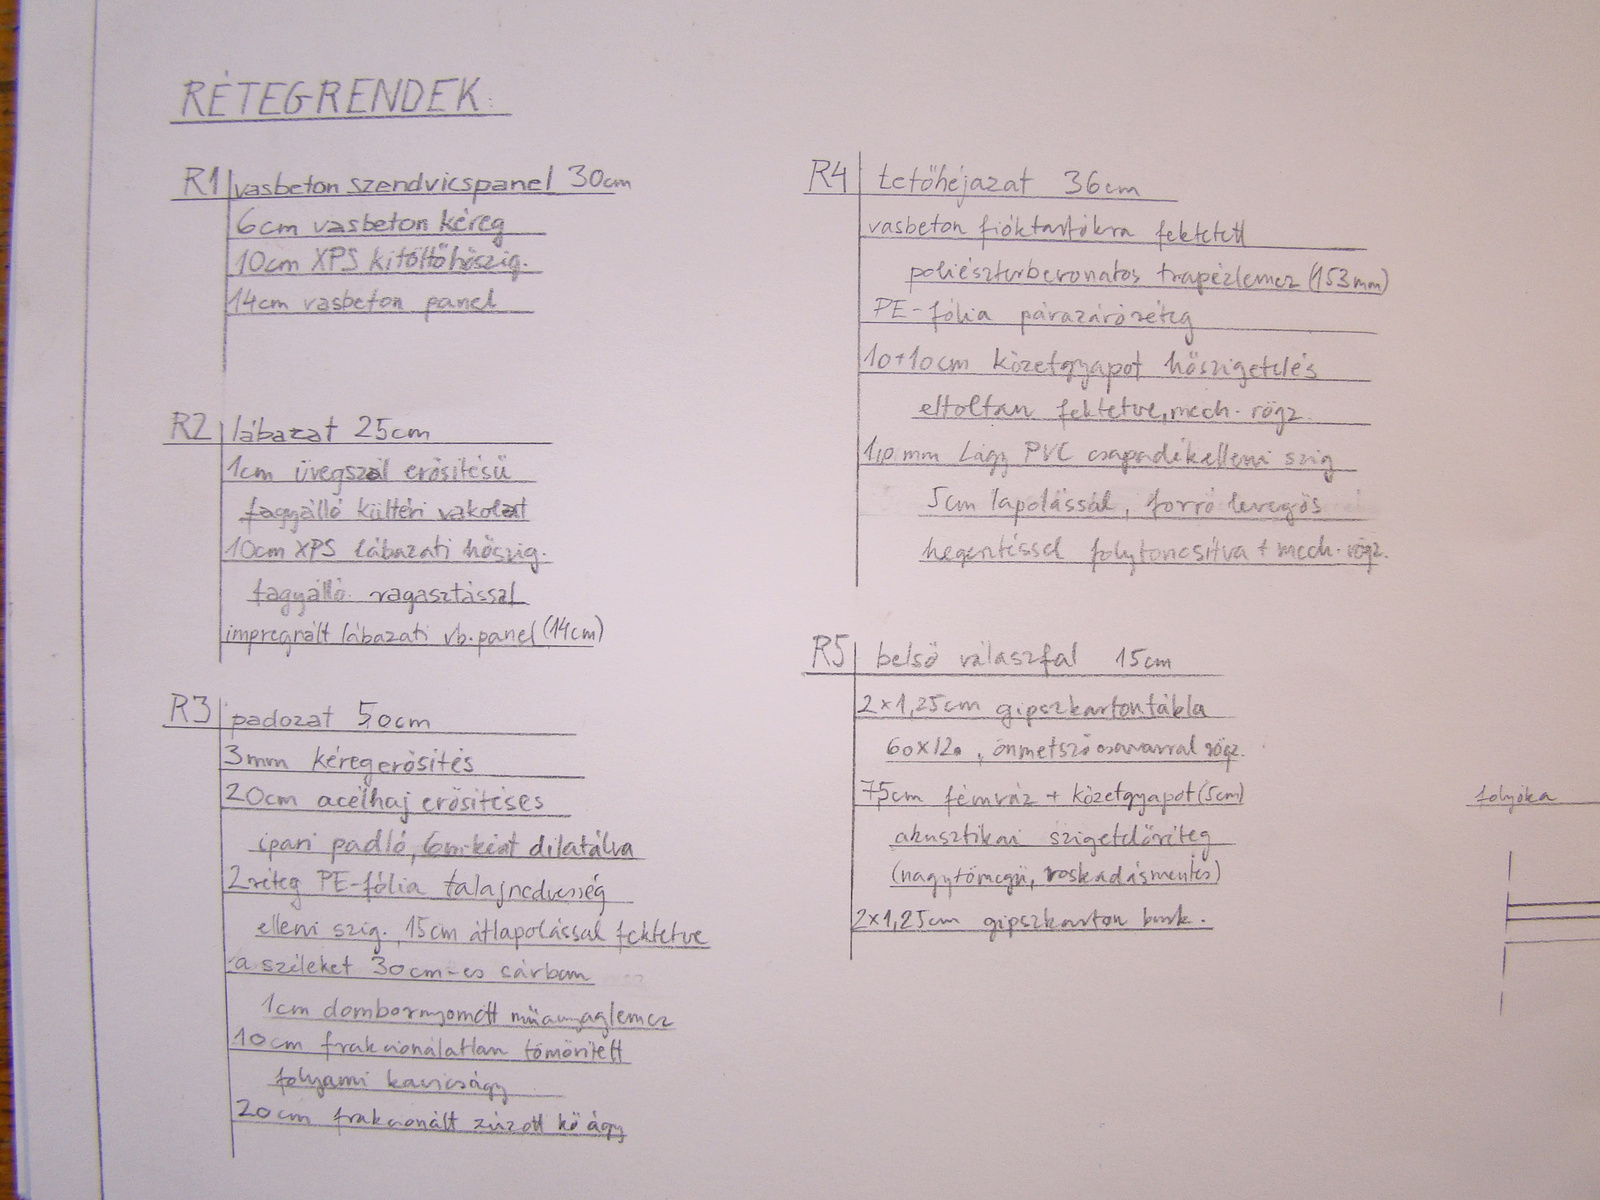 RÉTEGRENDEK:
R1 vasbeton szendvicspanel 30cm
6cm vasbeton kéreg
10cm XPS kitöltőhőszig.
14cm vasbeton panel
R2 lábazat 25cm
1cm üvegszál erősítésű
fagyálló kültéri vakolat
10cm XPS lábazati hőszig.
fagyálló ragasztással
impregnált lábazati vb. panel (14cm)
R3 padozat 50cm
3mm kéregerősítés
20cm acélhaj erősítéses
ipari padló, 6m-ként dilatálva
2 réteg PE-fólia talajnedvesség
elleni szig., 15cm átlapolással fektetve
a széleket 30cm-es sávban
1cm dombornyomott műanyaglemez
10cm frakcionálatlan tömörített
folyami kavicságy
20cm frakcionált zúzott kő ágy
R4 tetőhéjazat 36cm
vasbeton fióktartókra fektetett
poliészterbevonatos trapézlemez (153mm)
PE-fólia párazáróréteg
10+10cm kőzetgyapot hőszigetelés
eltoltan fektetve, mech. rögz.
mm Lágy PVC csapadékelleni szig
5cm lapolással, forró levegős
hegesztéssel folytonosítva + mech. rögz.
R5 belső válaszfal 15cm
2x1,25cm gipszkartontábla
60x120, önmetsző csavarral rögz.
7,5cm fémváz + kőzetgyapot (5cm)
akusztikai szigetelőréteg
(nagytömegű, roskadásmentes)
2x1,25cm gipszkarton burk.
folyóka